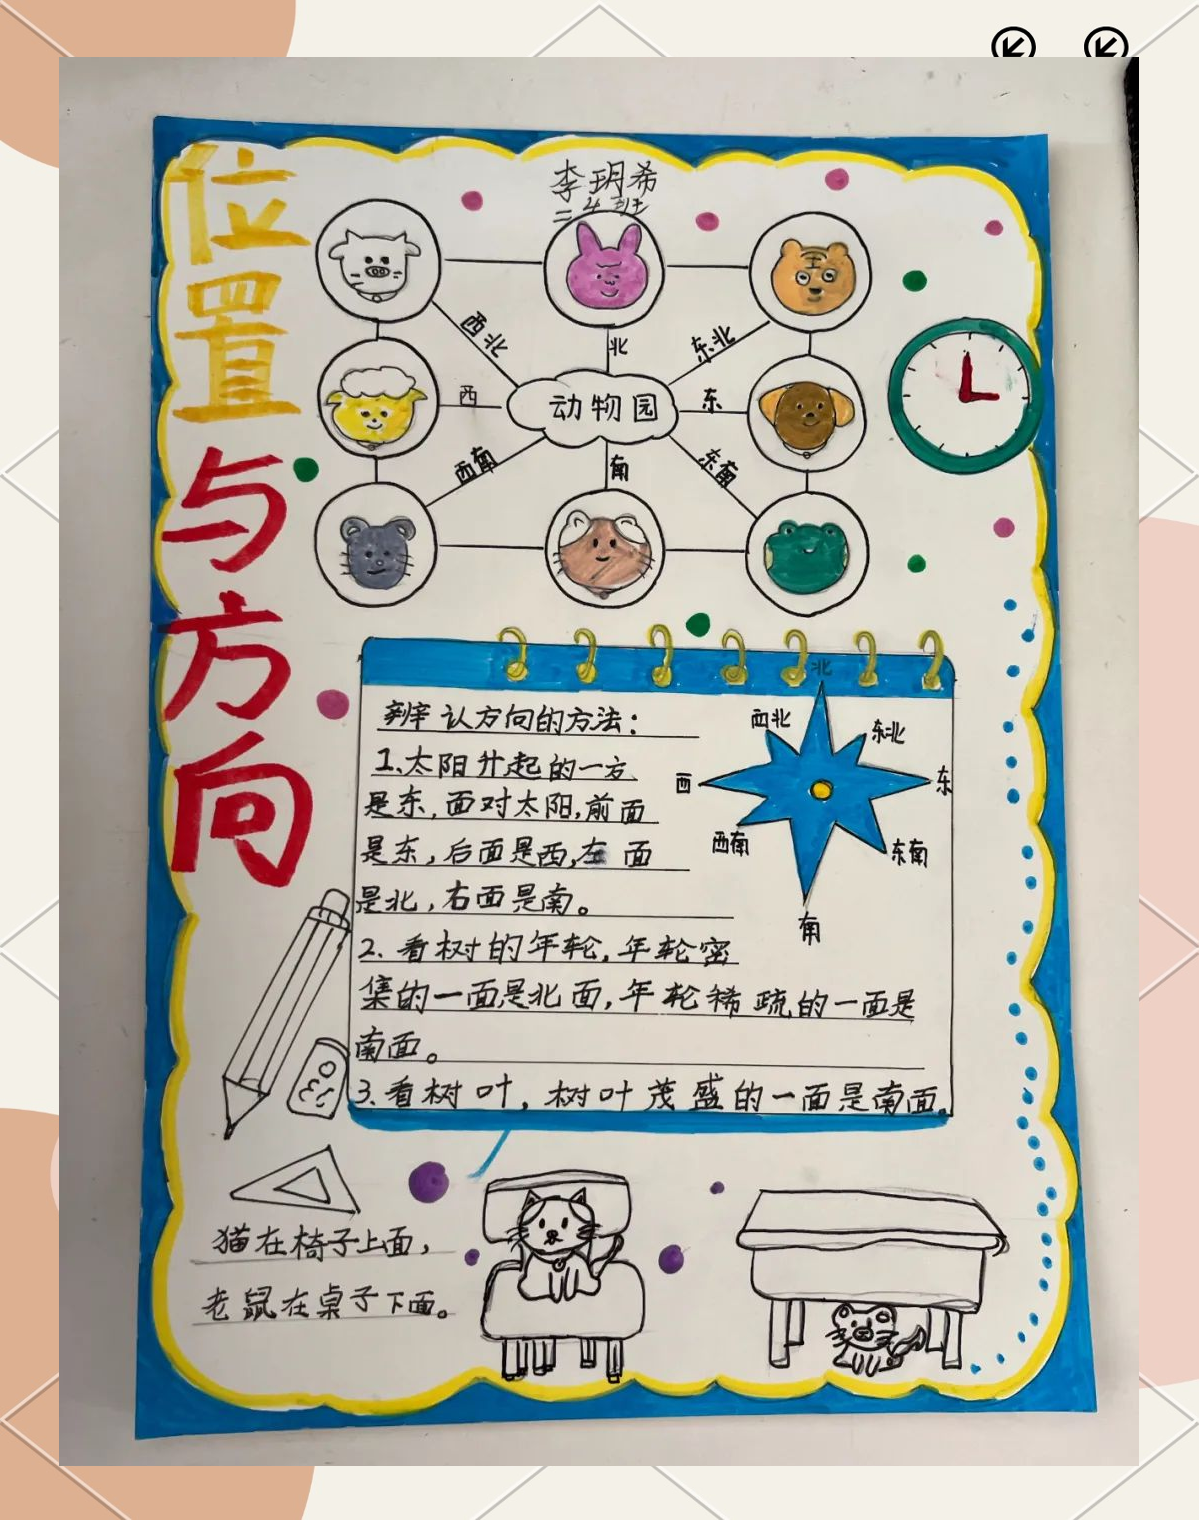 位置与方向
李玥希
二4班
西北
北
东北
西
动物园
东
西南
南
东南
辨认方向的方法：
1、太阳升起的一方
是东，面对太阳，前面
是东，后面是西，左面
是北，右面是南。
2、看树的年轮，年轮密
集的一面是北面，年轮稀疏的一面是
南面。
3、看树叶，树叶茂盛的一面是南面。
北
西北
东北
西
东
西南
东南
南
猫在椅子上面，
老鼠在桌子下面。